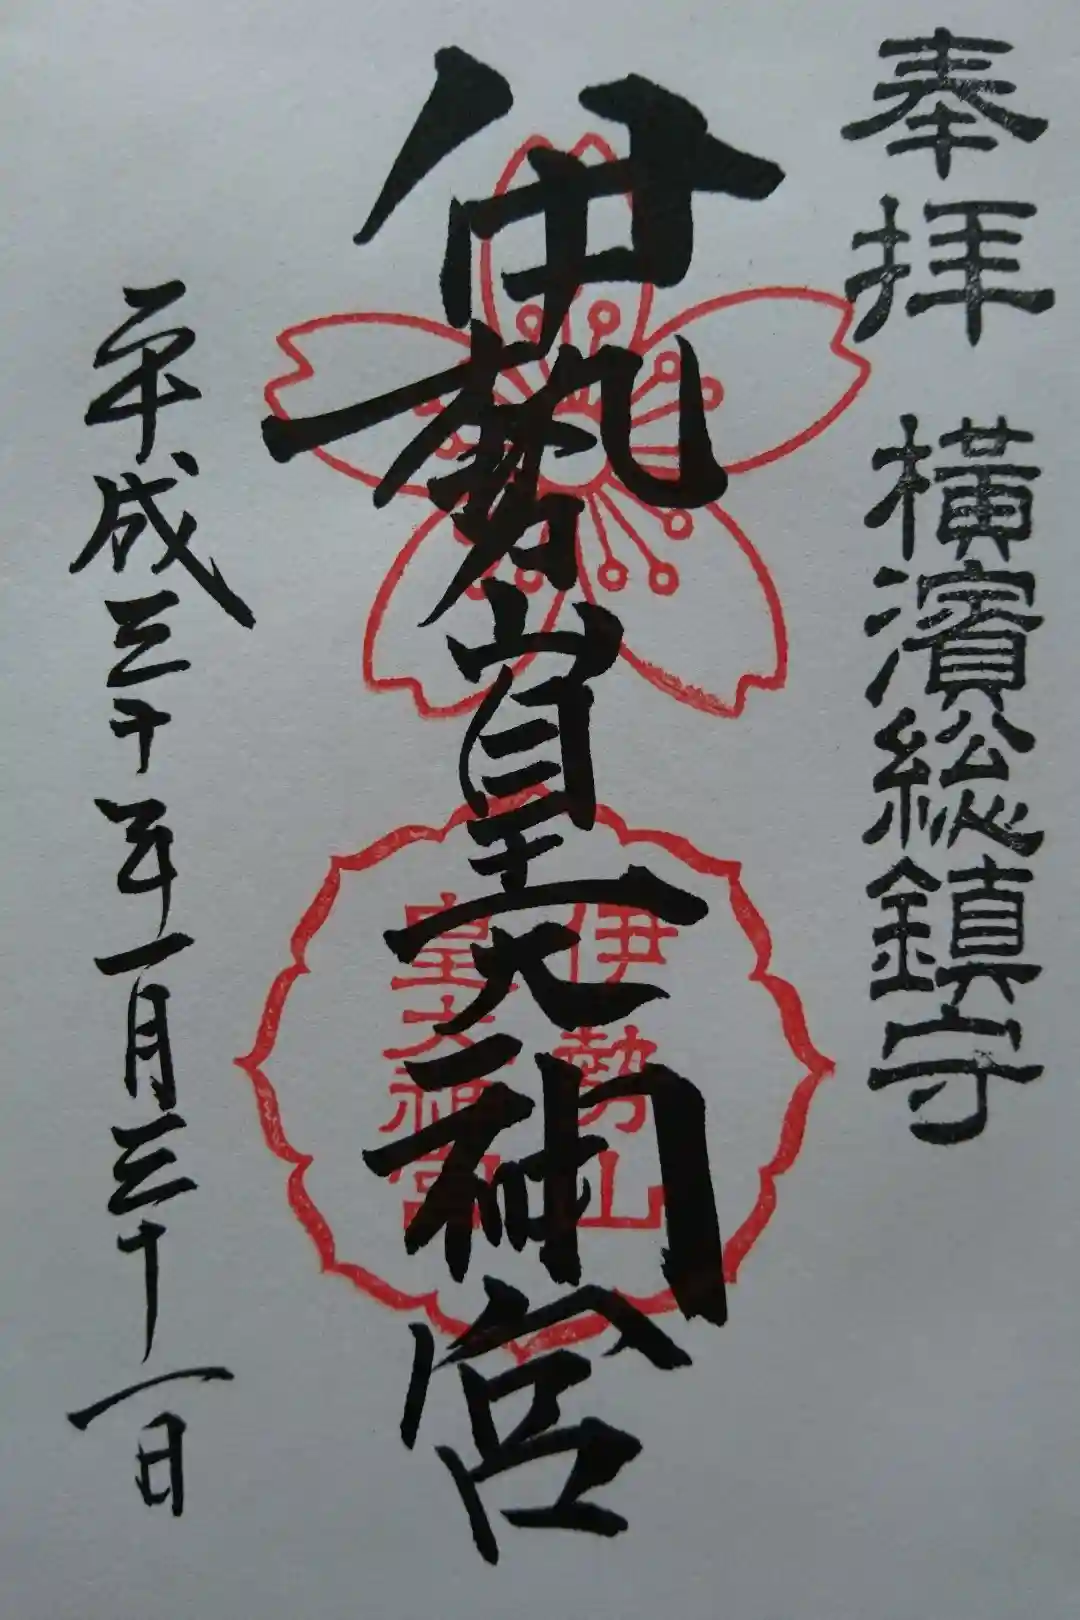 奉拝 横濱総鎮守
伊勢山皇大神宮
伊勢山
皇大神宮
平成三十年一月三十一日